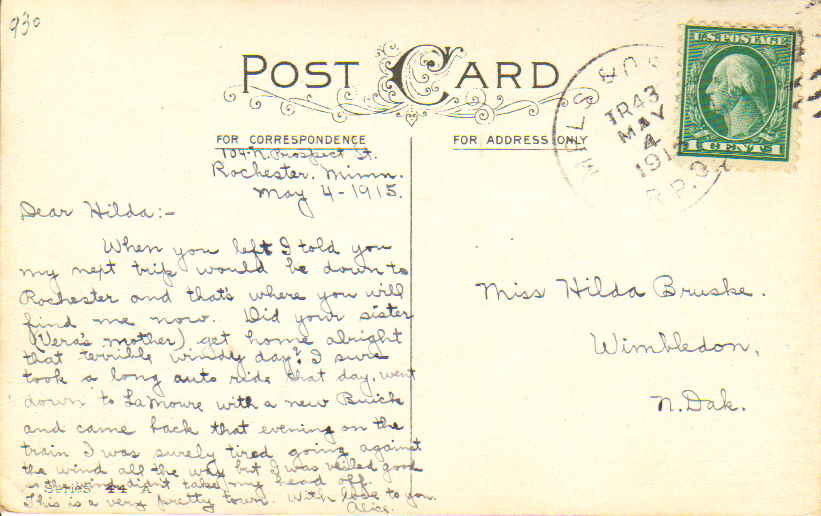 930
POST CARD
U.S. POSTAGE
1 CENTS 1
TR 43
MAY
4
191
R.P.O.
MPLS
FOR CORRESPONDENCE
FOR ADDRESS ONLY
104-N. Prospect St.
Rochester. Minn.
May 4-1915.
Dear Hilda:-
When you left I told you
my next trip would be down to
Rochester and that's where you will
find me now. Did your sister
(Vera's mother) get home alright
that terrible windy day? I sure
took a long auto ride that day, went
down to LaMoure with a new Buick
and came back that evening on the
train I was surely tired going against
the wind all the way but I was veiled good
so the wind didn't take my head off.
This is a very pretty town. With love to you.
Alice.
Series 44 A
Miss Hilda Bruske.
Wimbledon,
N. Dak.